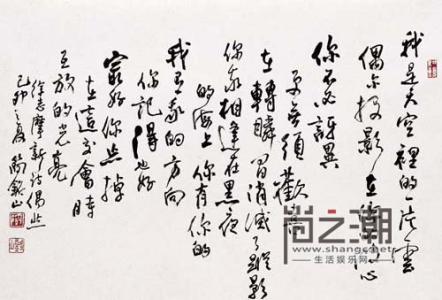 我是天空裡的一片雲
偶尔投影在你心
你不必訝異
更無須歡喜
在轉瞬間消滅了蹤影
你我相逢在黑夜
的海上你有你的
我有我的方向
你記得也好
最好你忘掉
在這交會時
互放的光亮
徐志摩新詩偶然
己卯之夏 銘山
尚之潮
www.shangc.net
生活娱乐网